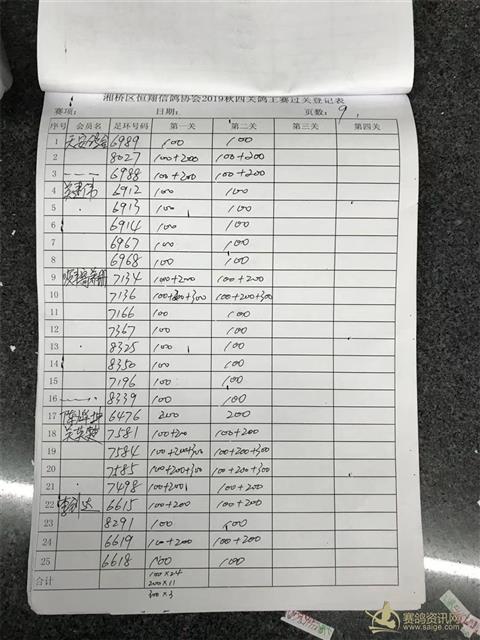 湘桥区恒翔信鸽协会2019秋四关鸽王赛过关登记表
赛项: 日期: 页数: 9
序号 会员名 足环号码 第一关 第二关 第三关 第四关
1 6989 100 100
2 8027 100+200 100+200
3 6988 100+200 100+200
4 6912 100 100
5 6913 100 100
6 6914 100 100
7 6967 100 100
8 6968 100 100
9 7134 100+200 100+200
10 7136 100+200+300 100+200+300
11 7166 100 100
12 7367 100 100
13 8325 100 100
14 8350 100 100
15 7196 100 100
16 8339 100 100
17 6476 200 200
18 7581 100+200 100+200
19 7584 100+200+300 100+200+300
20 7585 100+200+300 100+200+300
21 7498 100+200 100+200
22 6615 100+200 100+200
23 8291 100 100
24 6619 100+200 100+200
25 6618 100 100
合计 100×24
200×11
300×3
赛鸽资讯网
www.saige.com